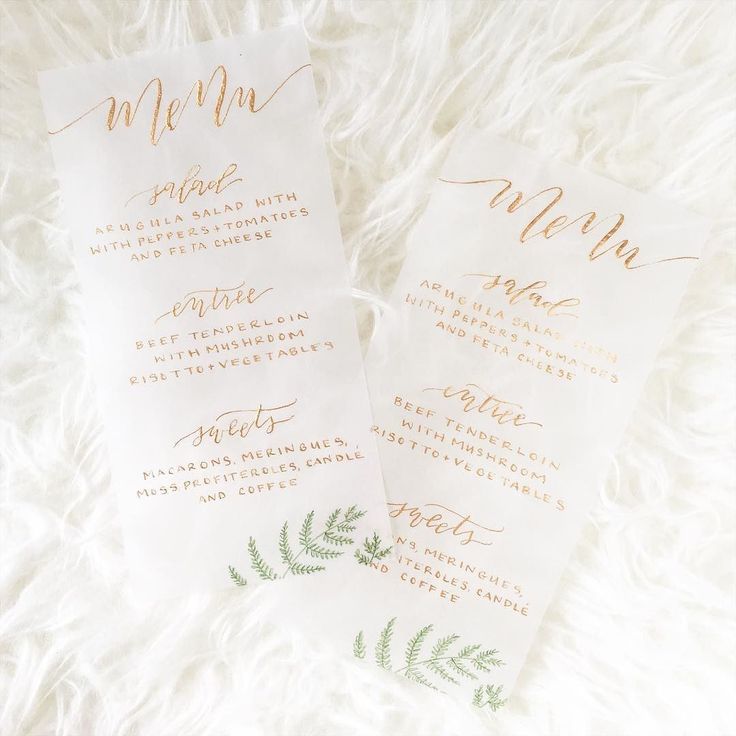 Menu
salad
ARUGULA SALAD WITH
WITH PEPPERS + TOMATOES
AND FETA CHEESE
entrée
BEEF TENDERLOIN
WITH MUSHROOM
RISOTTO + VEGETABLES
sweets
MACARONS, MERINGUES,
MOSS, PROFITEROLES, CANDLÉ
AND COFFEE
Menu
salad
ARUGULA SALAD WITH
WITH PEPPERS + TOMATOES
AND FETA CHEESE
entrée
BEEF TENDERLOIN
WITH MUSHROOM
RISOTTO + VEGETABLES
sweets
MERINGUES,
CANDLÉ
AND COFFEE